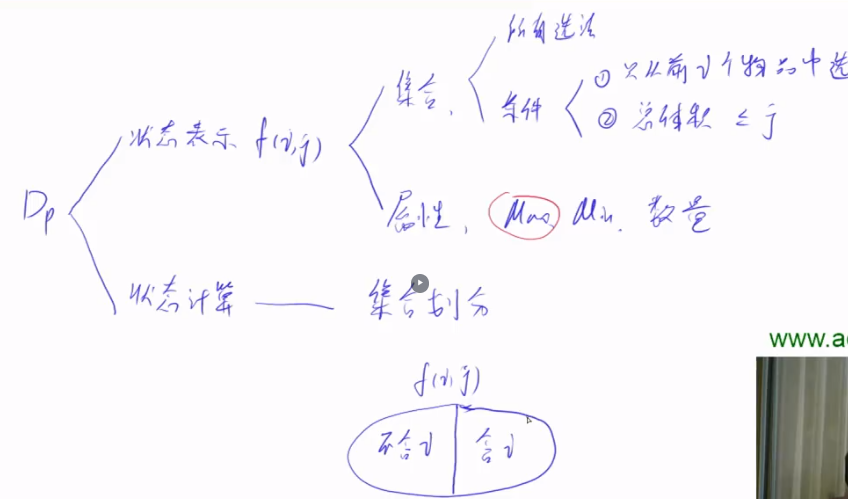 所有选法
集合、
条件
① 只从前i个物品中选
② 总体积 ≤ j
状态表示 f(i,j)
Dp
属性、 Max Min、 数量
状态计算
集合划分
www.ac
f(i,j)
不含i 含i